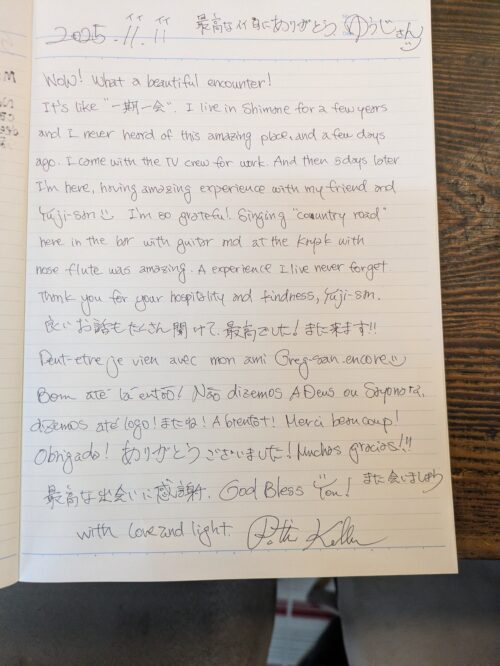 2025.11.11 イイ イイ 最高なイイ日にありがとう ゆうじさん
Wow! What a beautiful encounter!
It's like "一期一会". I live in Shimane for a few years
and I never heard of this amazing place, and a few days
ago. I come with the TV crew for work. And then 5days later
I'm here, having amazing experience with my friend and
Yuji-san I'm so grateful! Singing "country road"
here in the bar with guitar and at the with
nose flute was amazing. A experience I live never forget.
Thank you for your hospitality and findness, Yuji-sm.
良いお話もたくさん聞けて、最高でした! また来ます!!
Peut-etre je vien avec mon ami Greg-san.encore
Bom até lá então! Não dizemos ADeus ou Sayonara,
dizemos até logo! またね! A bientot! Merci beaucoup!
Obrigado! ありがとうございました! Muchas gracias!!
最高な出会いに感謝. God Bless You! また会いましょう
with love and light.